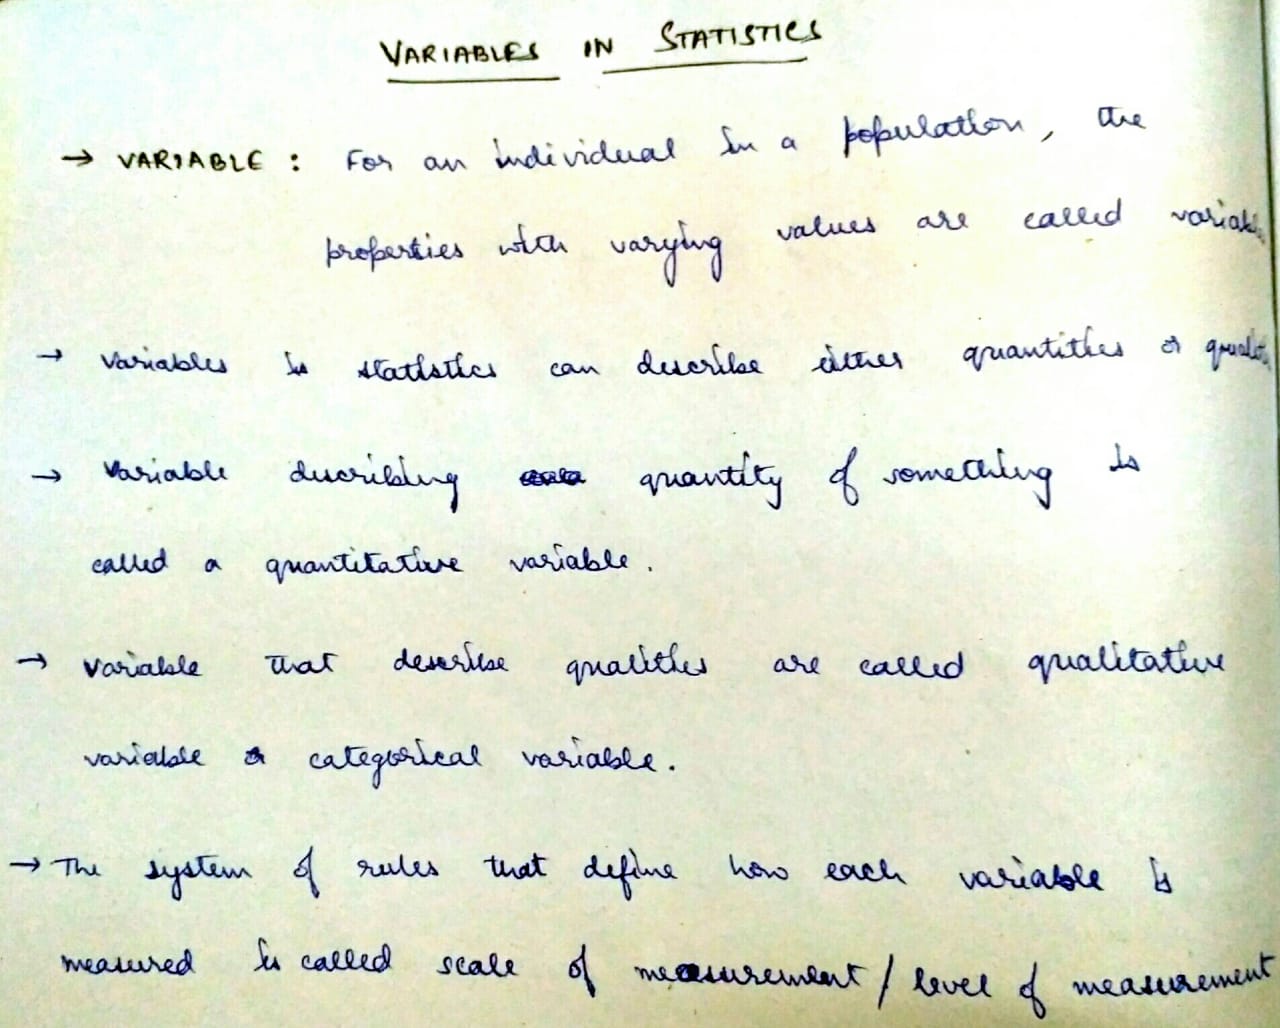 VARIABLES IN STATISTICS
→ VARIABLE : For an individual in a population, the
properties with varying values are called variable
→ Variables in statistics can describe either quantities or
→ Variable describing quantity of something is
called a quantitative variable.
→ Variable that describe qualities are called qualitative
variable or categorical variable.
→ The system of rules that define how each variable is
measured is called scale of measurement / level of measurement